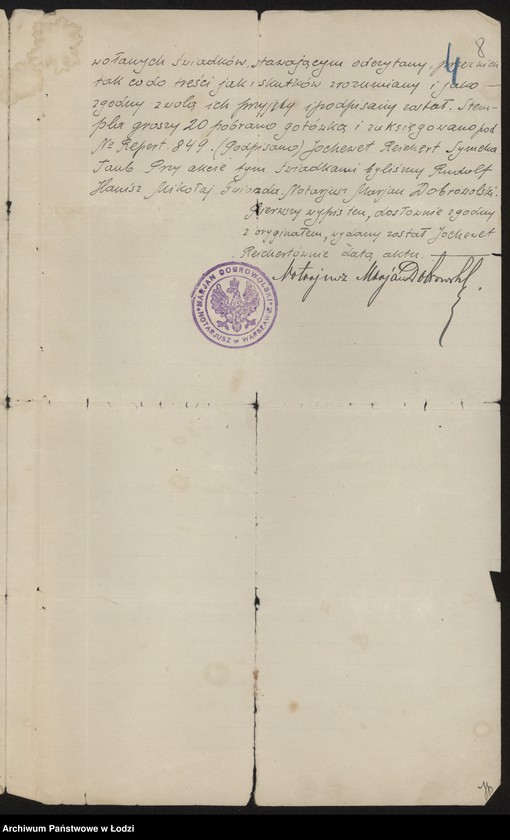 8
4
wołanych świadków, stawającym odczytany, przez nich
tak co do treści jak i skutków zrozumiany i jako
zgodny z wolą ich przyjęty i podpisany został. Stem-
pla groszy 20 pobrano gotówką i zaksięgowano pod
№ Repert. 849. (Podpisano) Jochewet Reichert Symcha
Taub. Przy akcie tym świadkami byliśmy Rudolf
Hanisz Mikołaj Notarjusz Marjan Dobrowolski.
Pierwszy wypis ten, dosłownie zgodny
z oryginałem, wydany został Jochewet
Reichertównie datą aktu. —
Notarjusz Marjan Dobrowolski
* MARJAN DOBROWOLSKI *
NOTARJUSZ w WARSZAWIE
Archiwum Państwowe w Łodzi